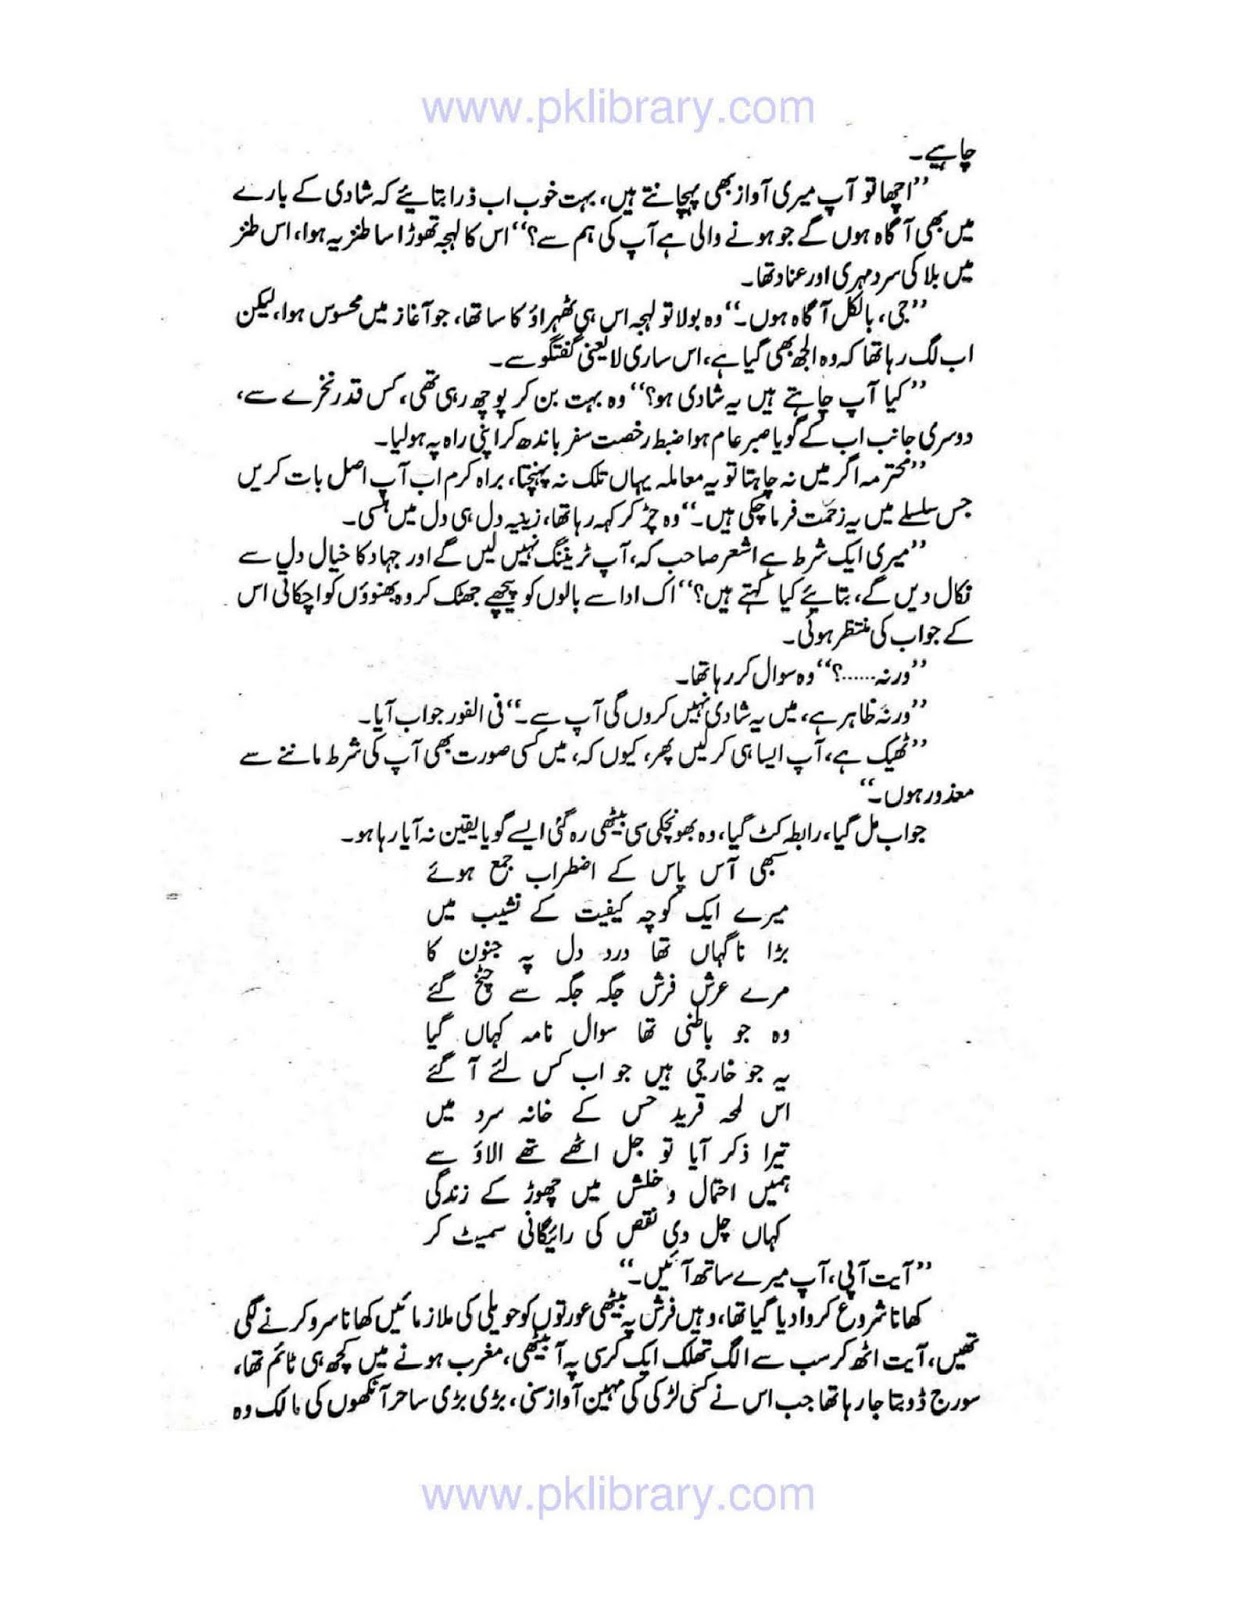 www.pklibrary.com
چاہیے۔
’’اچھا تو آپ میری آواز بھی پہچانتے ہیں، بہت خوب اب ذرا بتائیے کہ شادی کے بارے
میں بھی آگاہ ہوں گے جو ہونے والی ہے آپ کی ہم سے؟‘‘ اس کا لہجہ تھوڑا سا طنزیہ ہوا، اس طنز
میں بلا کی سرد مہری اور عناد تھا۔
’’جی، بالکل آگاہ ہوں۔‘‘ وہ بولا تو لہجہ اس ہی ٹھہراؤ کا سا تھا، جو آغاز میں محسوس ہوا، لیکن
اب لگ رہا تھا کہ وہ الجھ بھی گیا ہے، اس ساری لایعنی گفتگو سے۔
’’کیا آپ چاہتے ہیں یہ شادی ہو؟‘‘ وہ بہت بن کر پوچھ رہی تھی، کس قدر نخرے سے،
دوسری جانب اب کے گویا صبر عام ہوا ضبط رخصت سفر باندھ کر اپنی راہ پہ ہولیا۔
’’محترمہ اگر میں نہ چاہتا تو یہ معاملہ یہاں تلک نہ پہنچتا، براہ کرم اب آپ اصل بات کریں
جس سلسلے میں یہ زحمت فرما چکی ہیں۔‘‘ وہ چڑ کر کہہ رہا تھا، زینیہ دل ہی دل میں ہنسی۔
’’میری ایک شرط ہے اشعر صاحب کہ، آپ ٹریننگ نہیں لیں گے اور جہاد کا خیال دل سے
نکال دیں گے، بتائیے کیا کہتے ہیں؟‘‘ اک ادا سے بالوں کو پیچھے جھٹک کر وہ بھنوؤں کو اچکاتی اس
کے جواب کی منتظر ہوئی۔
’’ورنہ......؟‘‘ وہ سوال کر رہا تھا۔
’’ورنہ ظاہر ہے، میں یہ شادی نہیں کروں گی آپ سے۔‘‘ فی الفور جواب آیا۔
’’ٹھیک ہے، آپ ایسا ہی کر لیں پھر، کیوں کہ، میں کسی صورت بھی آپ کی شرط ماننے سے
معذور ہوں۔‘‘
جواب مل گیا، رابطہ کٹ گیا، وہ بھونچکی سی بیٹھی رہ گئی ایسے گویا یقین نہ آیا رہا ہو۔
سبھی آس پاس کے اضطراب جمع ہوئے
میرے ایک کوچہ کیفیت کے نشیب میں
بڑا ناگہاں تھا درد دل پہ جنون کا
مرے عرش فرش جگہ جگہ سے چٹخ گئے
وہ جو باطنی تھا سوال نامہ کہاں گیا
یہ جو خارجی ہیں جو اب کس لئے آ گئے
اس لمحہ قرید حس کے خانہ سرد میں
تیرا ذکر آیا تو جل اٹھے تھے الاؤ سے
ہمیں احتمال و خلش میں چھوڑ کے زندگی
کہاں چل دی نقص کی رائیگانی سمیٹ کر
’’آیت آپی، آپ میرے ساتھ آئیں۔‘‘
کھانا شروع کروا دیا گیا تھا، وہیں فرش پہ بیٹھی عورتوں کو حویلی کی ملازمائیں کھانا سرو کرنے لگی
تھیں، آیت اٹھ کر سب سے الگ تھلک ایک کرسی پہ آ بیٹھی، مغرب ہونے میں کچھ ہی ٹائم تھا،
سورج ڈوبتا جا رہا تھا جب اس نے کسی لڑکی کی مہین آواز سنی، بڑی بڑی ساحر آنکھوں کی مالک وہ
www.pklibrary.com